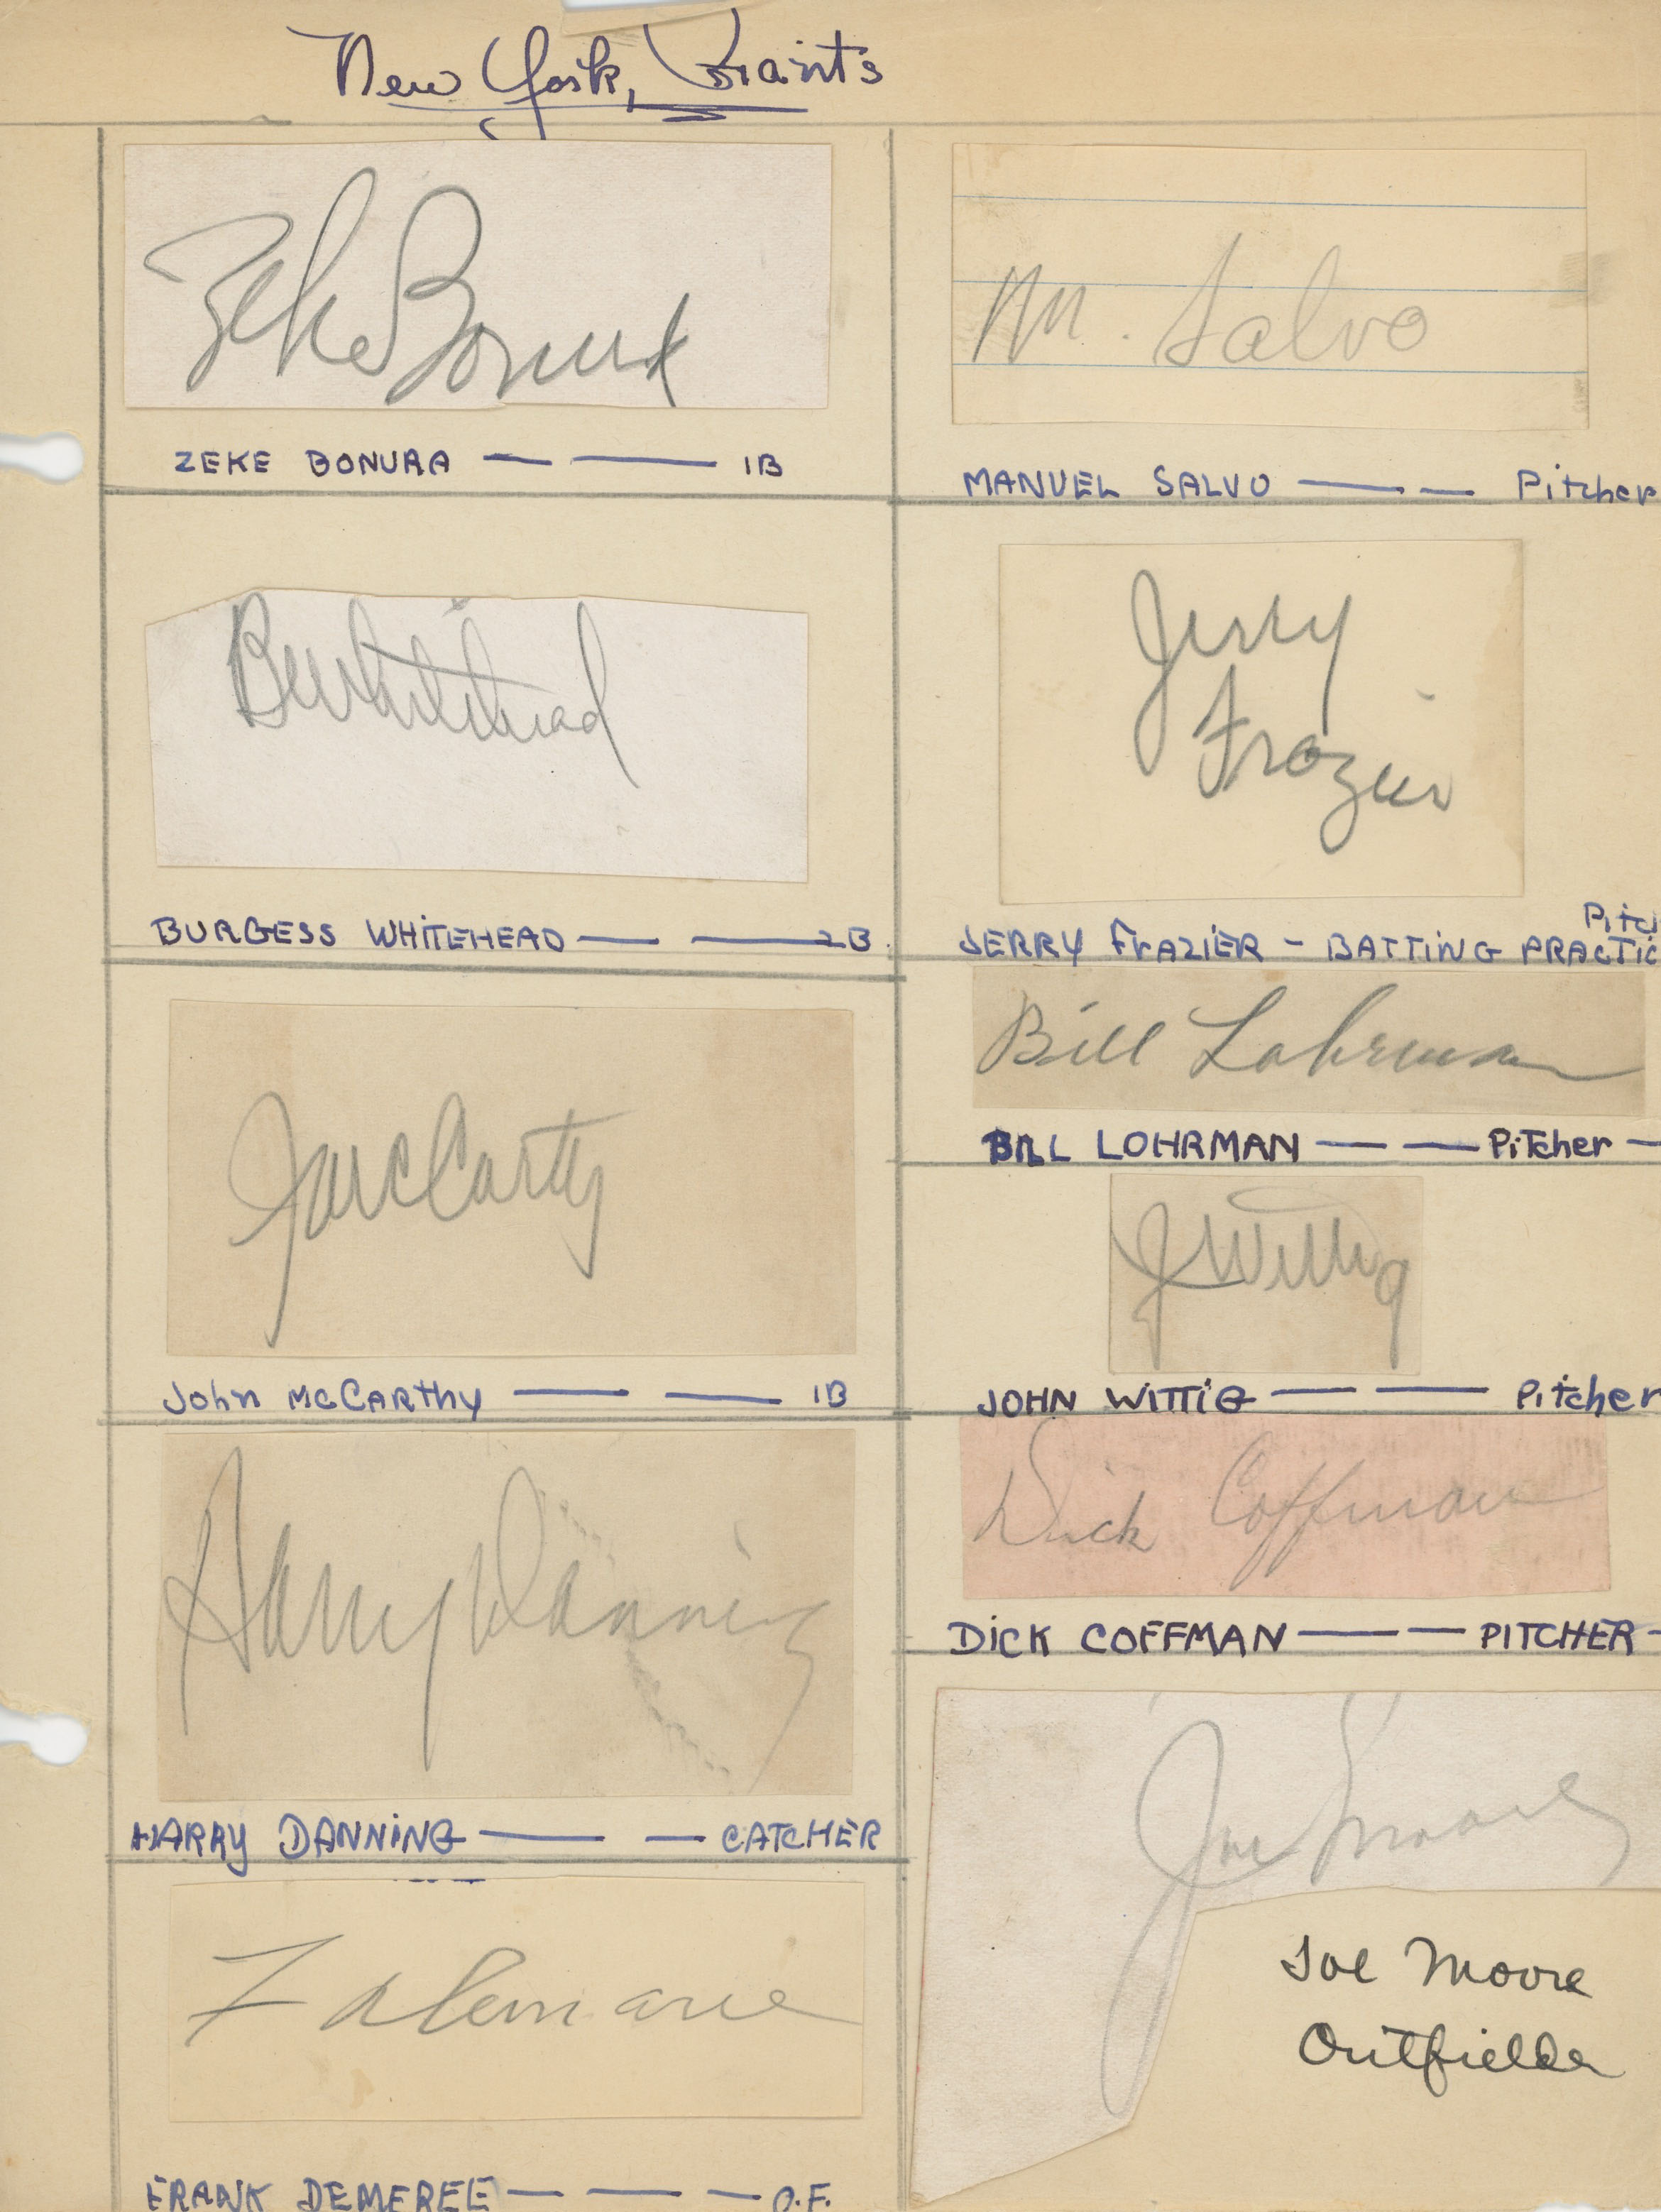 New York, Giants
Zeke Bonura
ZEKE BONURA — — 1B
BWhitehead
BURGESS WHITEHEAD — — 2B.
JMcCarthy
John McCarthy — — 1B
Harry Danning
HARRY DANNING — — CATCHER
F Demaree
FRANK DEMEREE — — — O.F.
M. Salvo
MANUEL SALVO — — Pitcher
Jerry
Frazier
Pitc
JERRY FRAZIER - BATTING PRACTIC
Bill Lohrman
BILL LOHRMAN — — Pitcher —
J Wittig
JOHN WITTIG — — Pitcher
Dick Coffman
DICK COFFMAN — — PITCHER -
Joe Moore
Joe Moore
Outfielder